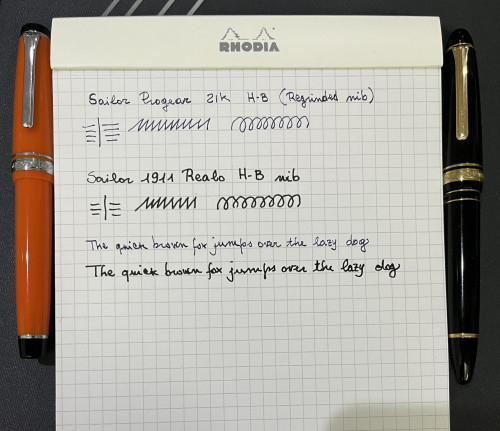 RHODIA
Sailor Progear 21K H-B (Regrinded nib)
Sailor 1911 Realo H-B nib
The quick brown fox jumps over the lazy dog
The quick brown fox jumps over the lazy dog